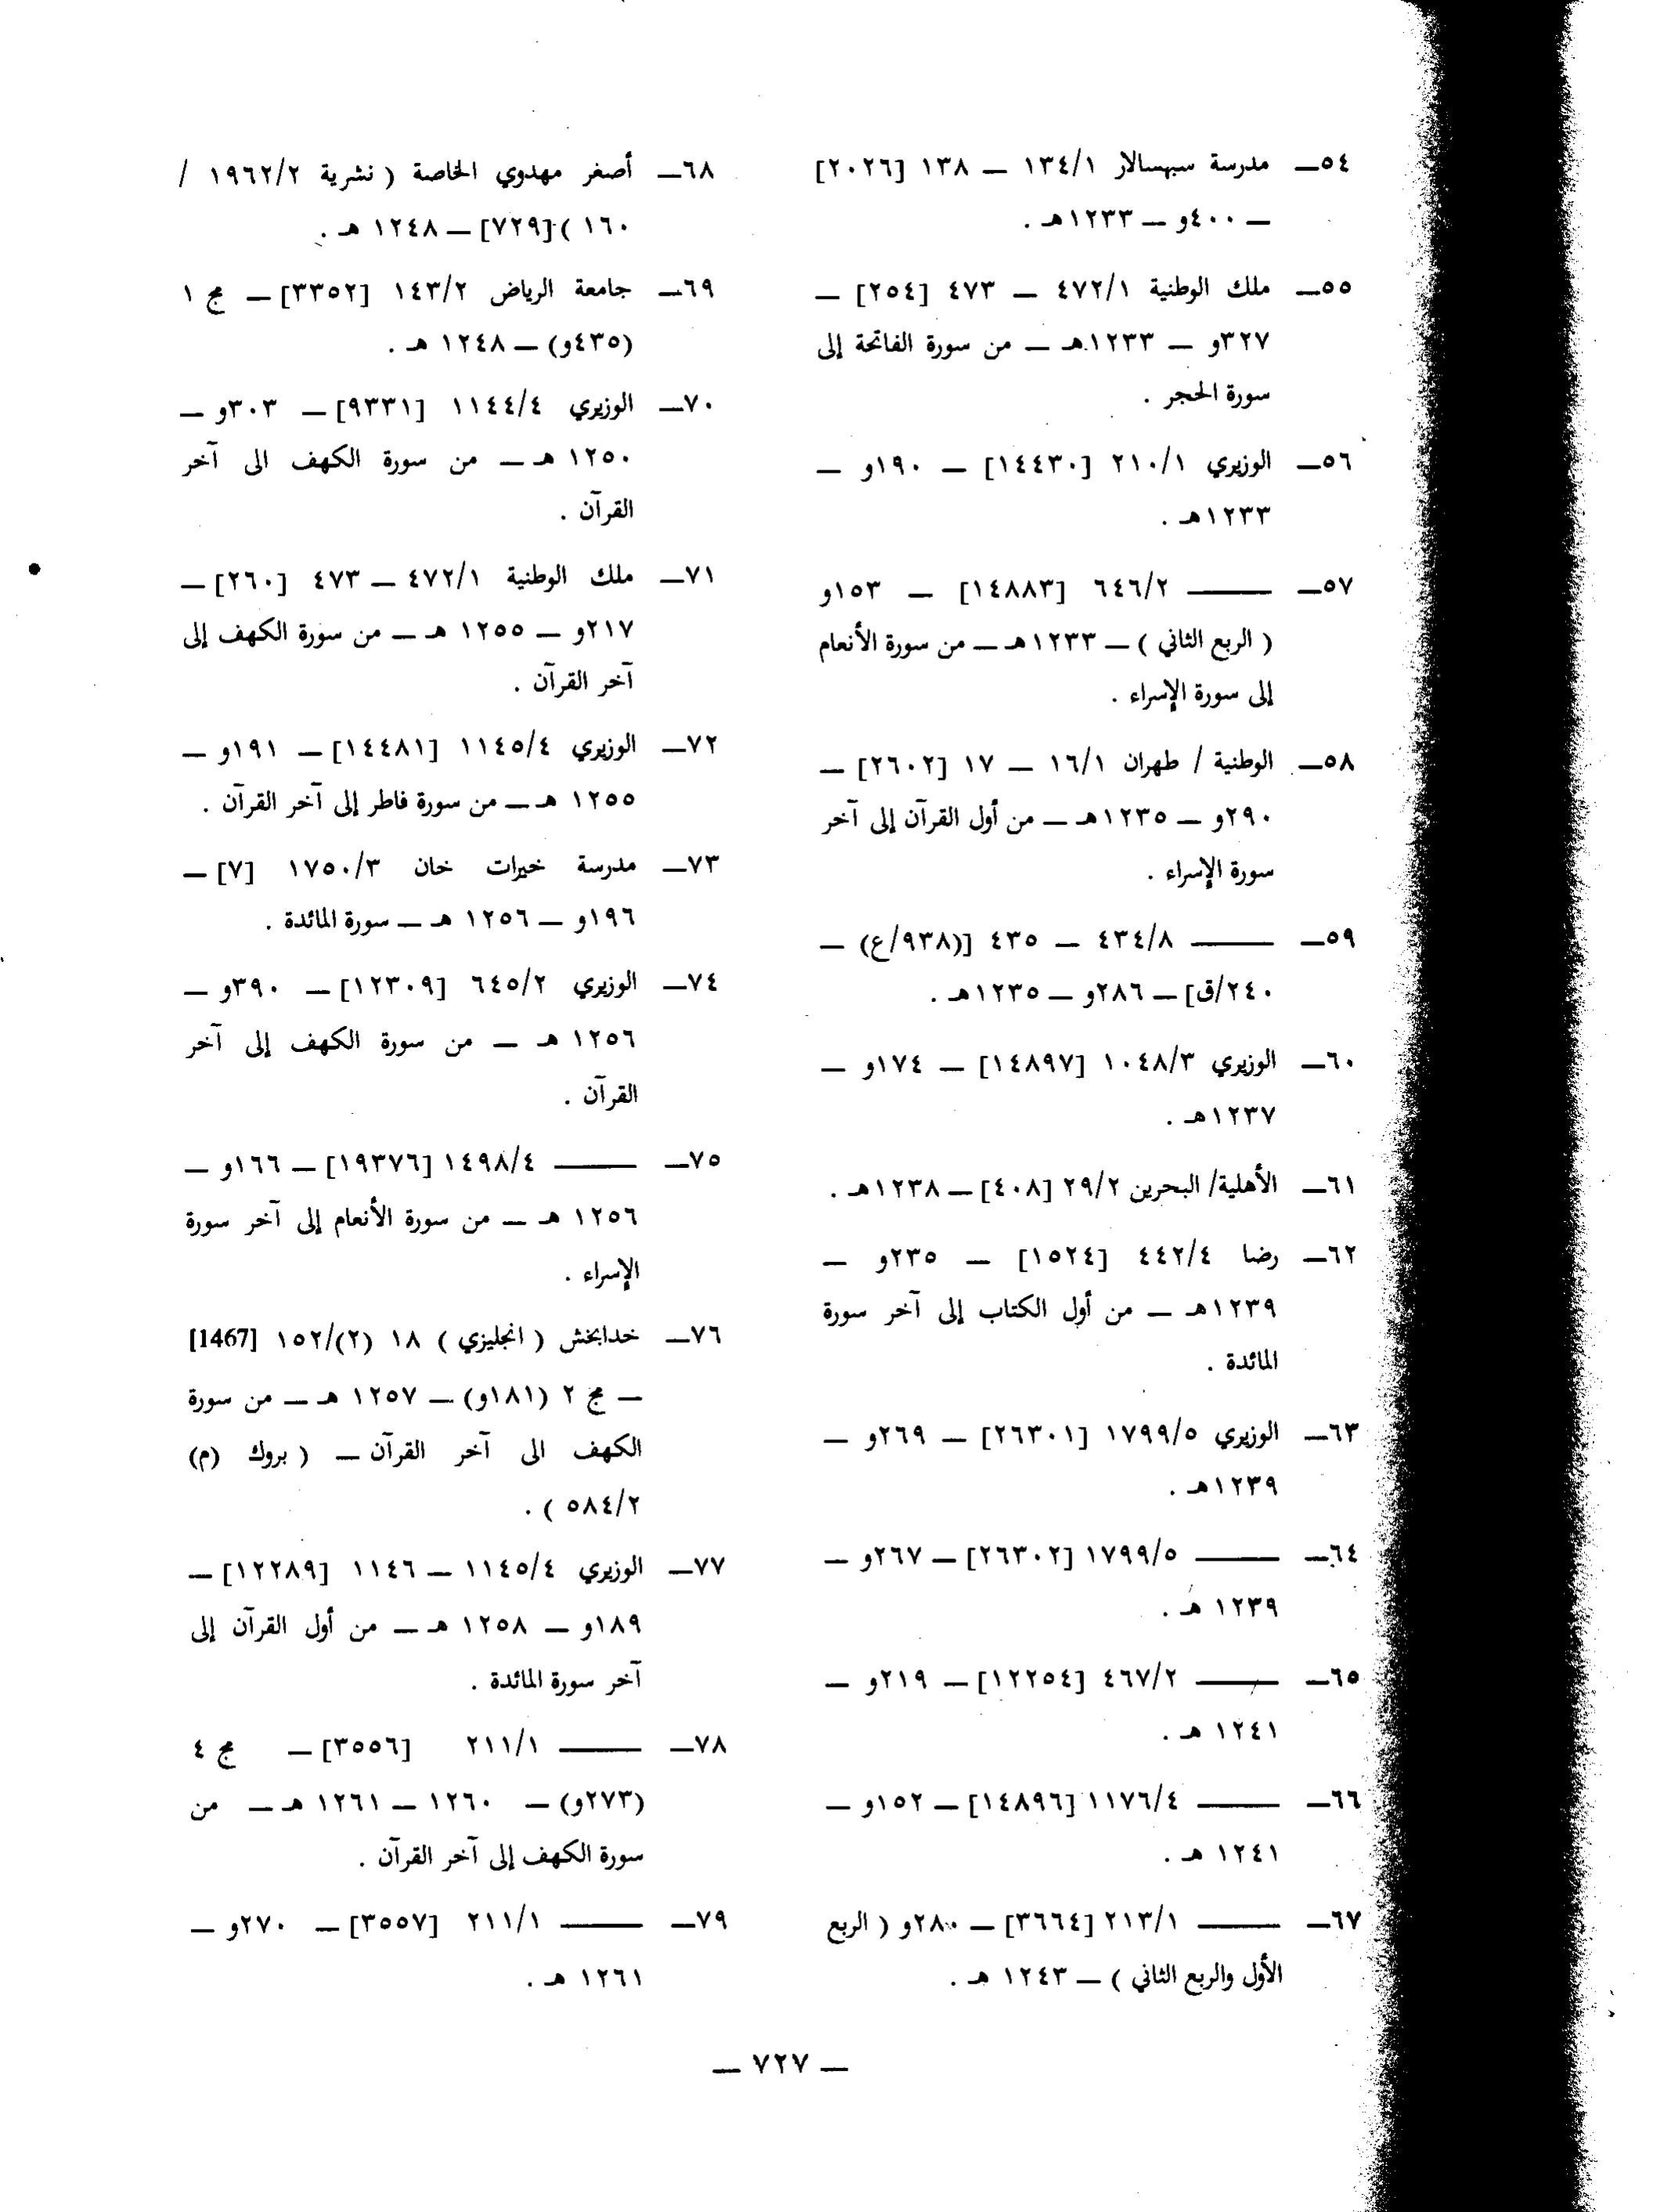 ٥٤ــ مدرسة سبهسالار ١٣٤/١ ــ ١٣٨ [٢٠٢٦]
ــ ٤٠٠و ــ ١٢٣٣هـ .
٥٥ــ ملك الوطنية ٤٧٢/١ ــ ٤٧٣ [٢٥٤] ــ
٣٢٧و ــ ١٢٣٣هـ ــ من سورة الفاتحة إلى
سورة الحجر .
٥٦ــ الوزيري ٢١٠/١ [١٤٤٣٠] ــ ١٩٠و ــ
١٢٣٣هـ .
٥٧ــ ــــــ ٦٤٦/٢ [١٤٨٨٣] ــ ١٥٣و
( الربع الثاني ) ــ ١٢٣٣هـ ــ من سورة الأنعام
إلى سورة الإسراء .
٥٨ــ الوطنية / طهران ١٦/١ ــ ١٧ [٢٦٠٢] ــ
٢٩٠و ــ ١٢٣٥هـ ــ من أول القرآن إلى آخر
سورة الإسراء .
٥٩ــ ــــــ ٤٣٤/٨ ــ ٤٣٥ [(٩٣٨/ع) ــ
٢٤٠/ق] ــ ٢٨٦و ــ ١٢٣٥هـ .
٦٠ــ الوزيري ١٠٤٨/٣ [١٤٨٩٧] ــ ١٧٤و ــ
١٢٣٧هـ .
٦١ــ الأهلية/ البحرين ٢٩/٢ [٤٠٨] ــ ١٢٣٨هـ .
٦٢ــ رضا ٤٤٢/٤ [١٥٢٤] ــ ٢٣٥و ــ
١٢٣٩هـ ــ من أول الكتاب إلى آخر سورة
المائدة .
٦٣ــ الوزيري ١٧٩٩/٥ [٢٦٣٠١] ــ ٢٦٩و ــ
١٢٣٩هـ .
٦٤ــ ــــــ ١٧٩٩/٥ [٢٦٣٠٢] ــ ٢٦٧و ــ
١٢٣٩ هـ .
٦٥ــ ــــــ ٤٦٧/٢ [١٢٢٥٤] ــ ٢١٩و ــ
١٢٤١ هـ .
٦٦ــ ــــــ ١١٧٦/٤ [١٤٨٩٦] ــ ١٥٢و ــ
١٢٤١ هـ .
٦٧ــ ــــــ ٢١٣/١ [٣٦٦٤] ــ ٢٨٠و ( الربع
الأول والربع الثاني ) ــ ١٢٤٣ هـ .
٦٨ــ أصغر مهدوي الخاصة ( نشرية ١٩٦٢/٢ /
١٦٠ ) [٧٢٩] ــ ١٢٤٨ هـ .
٦٩ــ جامعة الرياض ١٤٣/٢ [٣٣٥٢] ــ مج ١
(٤٣٥و) ــ ١٢٤٨ هـ .
٧٠ــ الوزيري ١١٤٤/٤ [٩٣٣١] ــ ٣٠٣و ــ
١٢٥٠ هـ ــ من سورة الكهف الى آخر
القرآن .
٧١ــ ملك الوطنية ٤٧٢/١ ــ ٤٧٣ [٢٦٠] ــ
٢١٧و ــ ١٢٥٥ هـ ــ من سورة الكهف إلى
آخر القرآن .
٧٢ــ الوزيري ١١٤٥/٤ [١٤٤٨١] ــ ١٩١و ــ
١٢٥٥ هـ ــ من سورة فاطر إلى آخر القرآن .
٧٣ــ مدرسة خيرات خان ١٧٥٠/٣ [٧] ــ
١٩٦و ــ ١٢٥٦ هـ ــ سورة المائدة .
٧٤ــ الوزيري ٦٤٥/٢ [١٢٣٠٩] ــ ٣٩٠و ــ
١٢٥٦ هـ ــ من سورة الكهف إلى آخر
القرآن .
٧٥ــ ــــــ ١٤٩٨/٤ [١٩٣٧٦] ــ ١٦٦و ــ
١٢٥٦ هـ ــ من سورة الأنعام إلى آخر سورة
الإسراء .
٧٦ــ خدابخش ( انجليزي ) ١٨ (٢)/١٥٢ [1467]
ــ مج ٢ (١٨١و) ــ ١٢٥٧ هـ ــ من سورة
الكهف الى آخر القرآن ــ ( بروك (م)
٥٨٤/٢ ) .
٧٧ــ الوزيري ١١٤٥/٤ ــ ١١٤٦ [١٢٢٨٩] ــ
١٨٩و ــ ١٢٥٨ هـ ــ من أول القرآن إلى
آخر سورة المائدة .
٧٨ــ ــــــ ٢١١/١ [٣٥٥٦] ــ مج ٤
(٢٧٣و) ــ ١٢٦٠ ــ ١٢٦١ هـ ــ من
سورة الكهف إلى آخر القرآن .
٧٩ــ ــــــ ٢١١/١ [٣٥٥٧] ــ ٢٧٠و ــ
١٢٦١ هـ .
ــ ٧٢٧ ــ